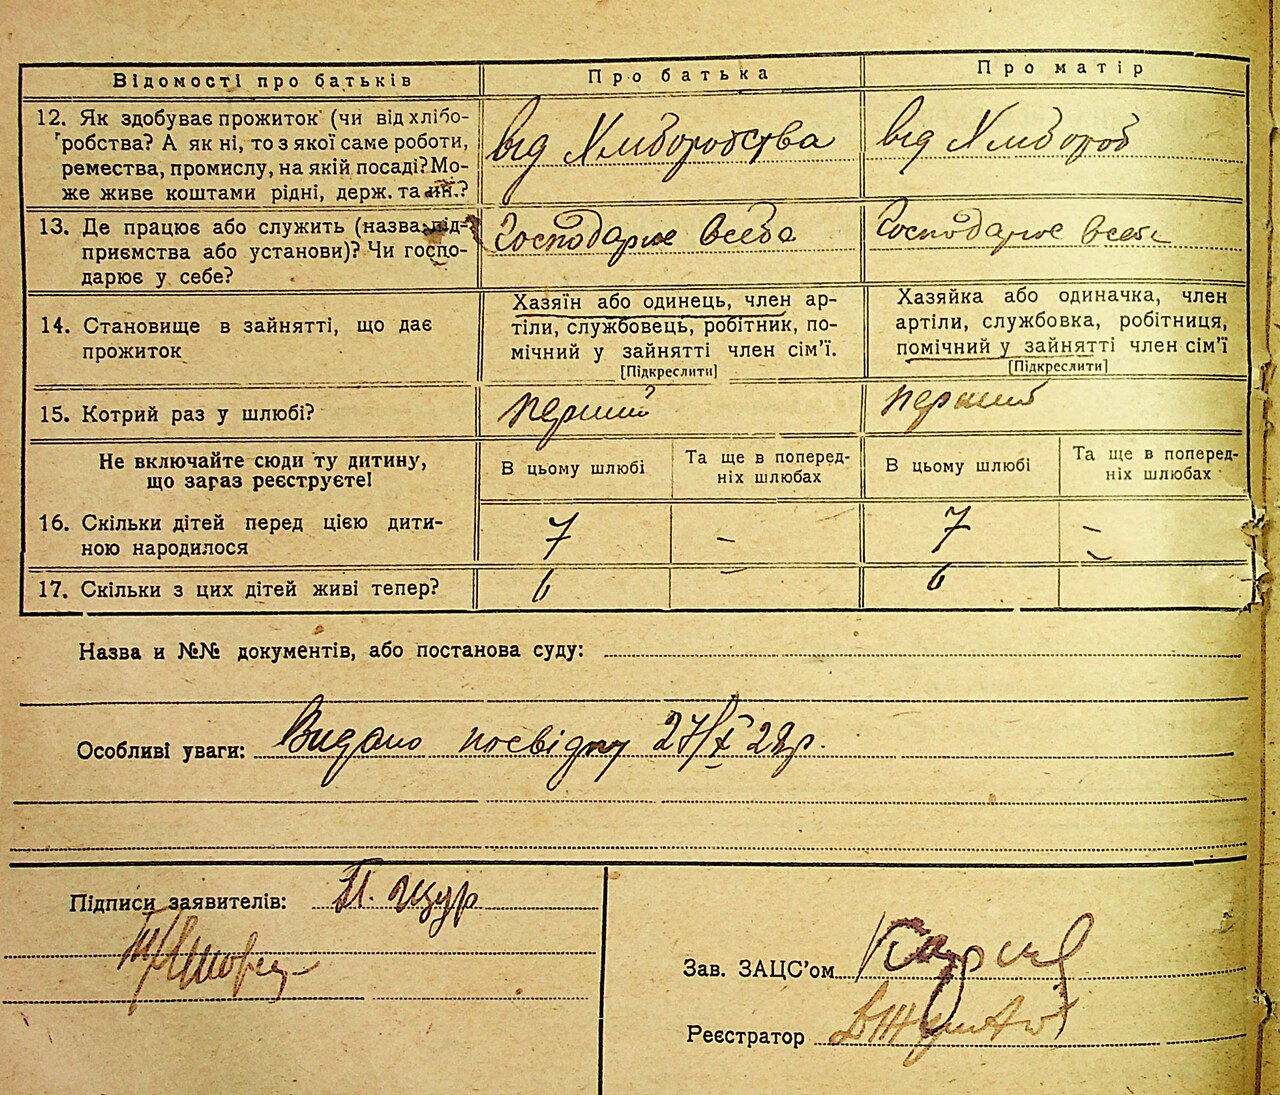 Відомості про батьків
Про батька
Про матір
12. Як здобуває прожиток (чи від хлібо-
робства? А як ні, то з якої саме роботи,
ремества, промислу, на якій посаді? Мо-
же живе коштами рідні, держ. та ин.?
від Хліборобства
від Хлібороб
13. Де працює або служить (назва під-
приємства або установи)? Чи госпо-
дарює у себе?
Господарює всебе
Господарює всебе
14. Становище в зайнятті, що дає
прожиток
Хазяїн або одинець, член ар-
тіли, службовець, робітник, по-
мічний у зайнятті член сім'ї.
[Підкреслити]
Хазяйка або одиначка, член
артіли, службовка, робітниця,
помічний у зайнятті член сім'ї
[Підкреслити]
15. Котрий раз у шлюбі?
перший
перший
Не включайте сюди ту дитину,
що зараз реєструєте!
В цьому шлюбі
Та ще в поперед-
ніх шлюбах
В цьому шлюбі
Та ще в поперед-
ніх шлюбах
16. Скільки дітей перед цією дити-
ною народилося
7
-
7
-
17. Скільки з цих дітей живі тепер?
6
-
6
-
Назва и №№ документів, або постанова суду:
Особливі уваги: Видано посвідку 27/X 22р.
Підписи заявителів: П. Щур
Зав. ЗАЦС'ом
Реєстратор